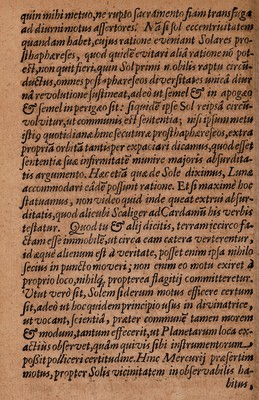 quin mihi metuo, ne rupto sacramento fiam transfuga
ad diurni motus assertores. Nā si sol eccentricitatem
quandam habet, cujus ratione eveniant Solares pro-
sthaphæreses, quod quidē evitari aliâ ratione nō pot-
est, non quit fieri, quin Sol primi mobilis raptu circū-
ductus, omnes post-phæreseos diversitates unicâ diur
nâ revolutione sustineat, adeo ut semel & in apogæo
& semel in perigæo sit: siquidē ipse Sol reipsâ circū-
volvitur, ut communis est sententia; nisi ipsum metu
istius quotidianæ hinc secuturæ prosthaphæreseos, extra
propriā orbitā tantisper expaciari dicamus, quod esset
sententiæ suæ infirmitatē munire majoris absurdita-
tis argumento. Hæc etiā quæ de Sole diximus, Lunæ
accommodari eâdē possunt ratione. Et si maximè hoc
statuamus, non video quid inde queat extrui absur-
ditatis, quod alienbi Scaliger ad Cardanū his verbis
testatur. Quod tu & alij dicitis, terram je circo fa-
ctam esse immobilē, ut circa eam cætera verterentur,
id æque alienum est à veritate, posset enim ipsa nihilo
secius in puncto moveri; non enim eo motu exiret à
proprio loco, nihilq́; propterea flagitij committeretur.
Utut verò sit, Solem siderum motus efficere certum
sit, adeò ut hoc quidem principio usus in divinatrice,
ut vocant, scientiâ, præter communē tamen morem
& modum, tantum effecerit, ut Planetarum loca ex-
actiùs observet, quàm quivis sibi instrumentorum
possit polliceri certitudine. Hinc Mercurij præsertim
motus, propter Solis vicinitatem inobservabilis ha-
bitus,